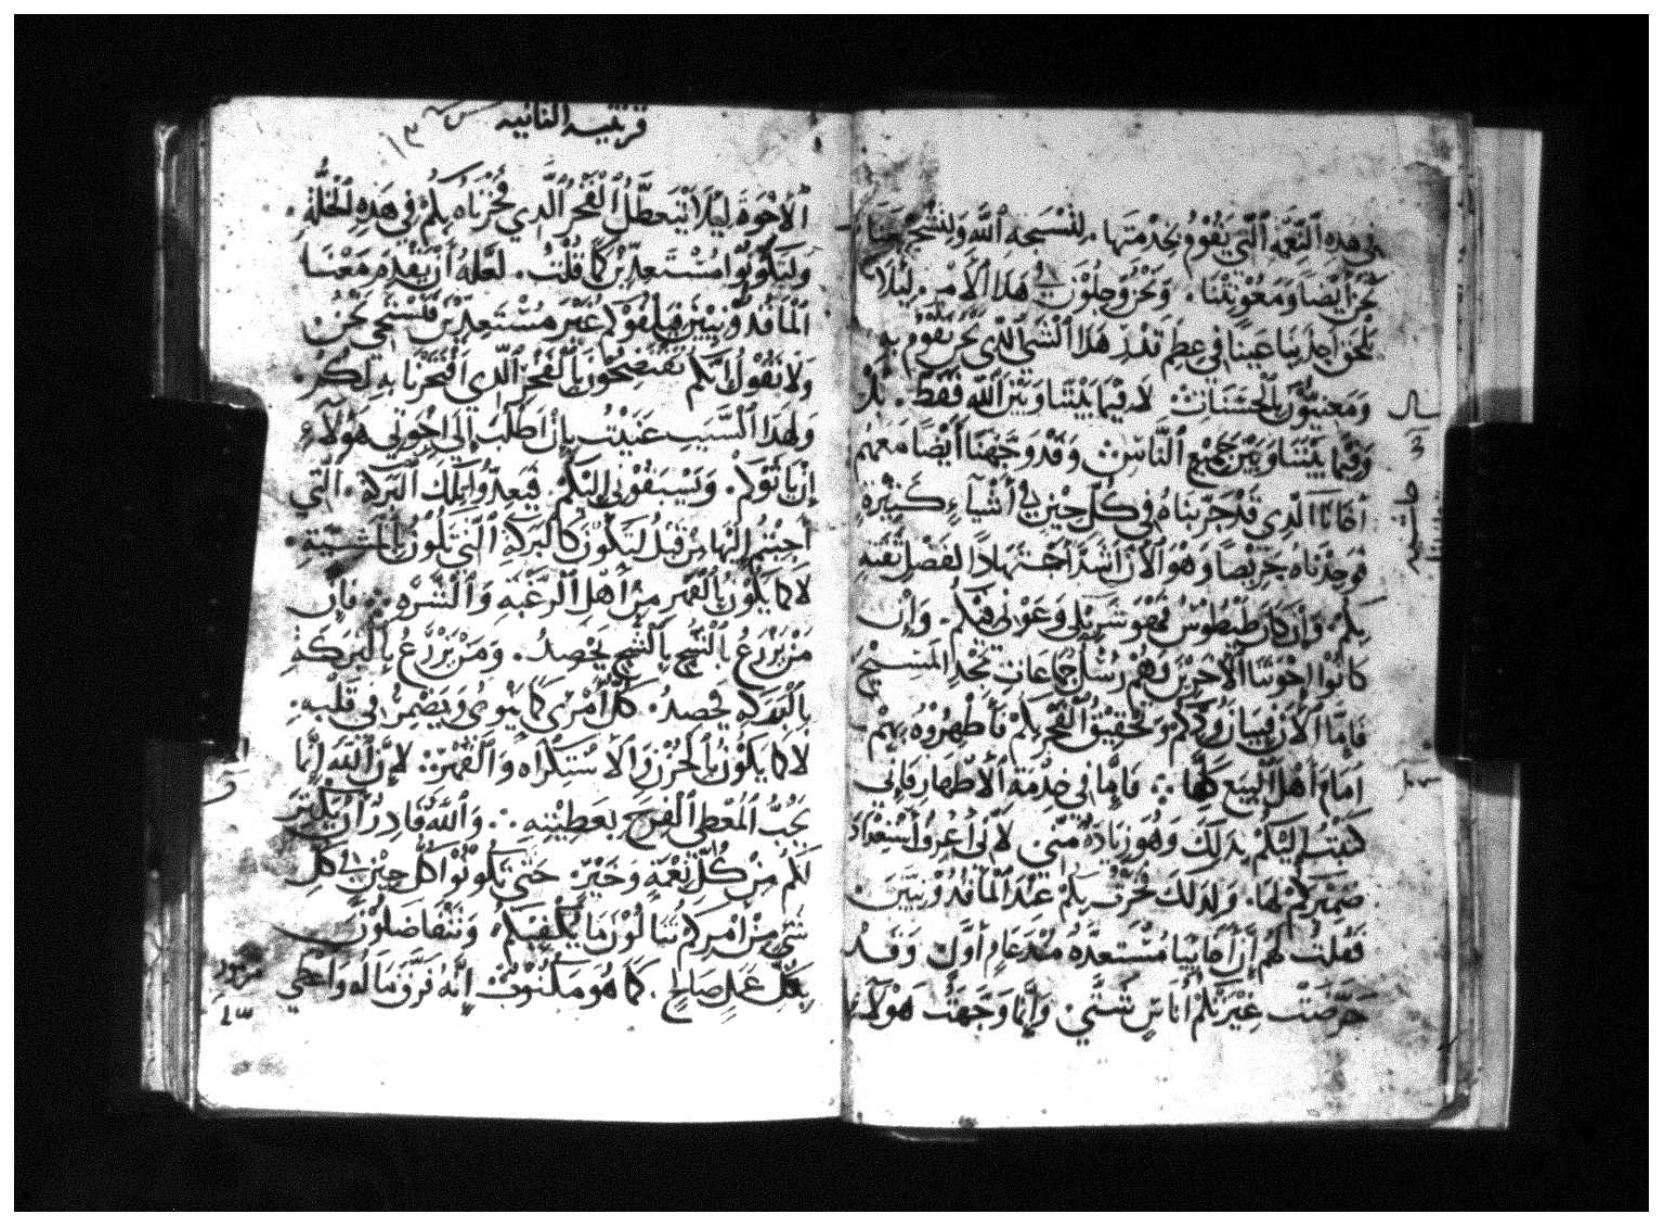 في هذه النعمة التي يقوم بخدمتها. لتسبحة الله ولتشجيعنا
نحن أيضا ومعونتنا. ونحن وجلون في هذا الأمر. ليلا
يلحق أحد بنا عيبًا في عظم قدر هذا الشي الذي نحن نقوم به
ومعنيون بالحسنات لا فيما بيننا وبين الله فقط. بل
وفيما بيننا وبين جميع الناس وقد وجهنا أيضا معهم
أخانا الذي قد جربناه في كل حين في أشياء كثيرة
فوجدناه حريصا وهو الآن أشد اجتهادًا لفضل ثقته
بكم. وإن كان طيطوس فهو شريكي وعوني فيكم. وإن
كانوا إخوتنا الآخرين فهم رسل جماعات مجد المسيح
فإما الآن فبيان ودكم وتحقيق الفخر بكم فأظهروه بهم
امام أهل البيع كلها فإما في خدمة الأطهار فإني
كتبت إليكم بذلك وهو زيادة مني لأني أعرف استعداد
ضميركم لها. ولذلك فخرت بكم عند الماقدونيين
فقلت لهم إن أخاييا مستعدة منذ عام أول وقد
حرضت غيرتكم أناس شتى وإنما وجهت هولاء
سال
قرنتيه الثانيه
١٣
الأخوة ليلا يتعطل الفخر الذي فخرناه بكم في هذه الخلة.
ولتكونوا مستعدين كما قلت. لعله أن يقدم معنا
الماقدونيين فيلفوكم غير مستعدين فنستحي نحن.
ولا نقول انكم تفتضحون بالفخر الذي افتخرنا به لكم.
ولهذا السبب عنيت بإن اطلب إلى اخوتي هولاء
إن ياتوكم. ويسبقوني إليكم. فيعدوا تلك البركة. التي
أجبتم إليها من قبل لتكون كالبركة التي تكون بالمشيئة.
لا كما يكون بالقهر من أهل الرغبة والشره فإن
من يزرع بالشح بالشح يحصد. ومن يزرع بالبركة
بالبركة يحصد. كل امرئ كما ينوي ويضمر في قلبه.
لا كما يكون بالحزن والاستكراه والقهر لإن الله إنما
يحب المعطي الفرح بعطيته والله قادر أن يكثر
لكم من كل نعمة وخير حتى تكونوا كل حين في كل
شي من امركم تنالون ما يكفيكم وتتفاضلون
بكل عمل صالح. كما هو مكتوب إنه فرق ماله واعطى
مزمور